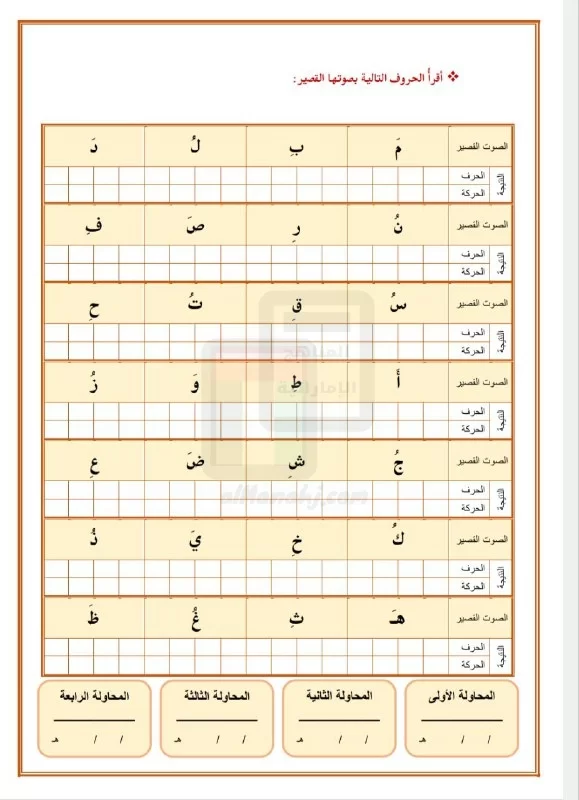 ❖ أقرأُ الحروف التالية بصوتها القصير:
الصوت القصير مَ بِ لُ دَ
النتيجة الحرف
الحركة
الصوت القصير نُ رِ صَ فِ
النتيجة الحرف
الحركة
الصوت القصير سُ قِ تُ حِ
النتيجة الحرف
الحركة
الصوت القصير أَ طِ وَ زُ
النتيجة الحرف
الحركة
الصوت القصير جُ شِ ضَ عِ
النتيجة الحرف
الحركة
الصوت القصير كُ خِ يَ ذُ
النتيجة الحرف
الحركة
الصوت القصير هَـ ثِ غُ ظَ
النتيجة الحرف
الحركة
المناهج
الإماراتية
alManahj.com
المحاولة الأولى المحاولة الثانية المحاولة الثالثة المحاولة الرابعة
/ / هـ / / هـ / / هـ / / هـ